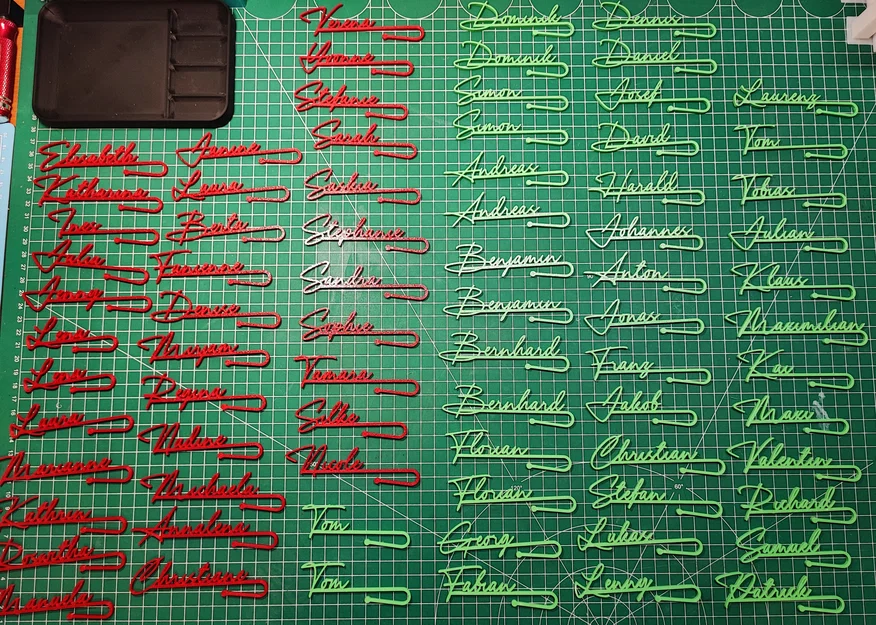 Elisabeth
Katharina
Ines
Julia
Jenny
Lena
Lena
Laura
Marianne
Kathrin
Roswitha
Manuela
Janine
Laura
Berta
Fabienne
Denise
Miryam
Regina
Nadine
Michaela
Annalena
Christiane
Verena
Yvonne
Stefanie
Sarah
Saskia
Stephanie
Sandra
Sophie
Tamara
Silke
Nicole
Tom
Tom
Dominik
Dominik
Simon
Simon
Andreas
Andreas
Benjamin
Benjamin
Bernhard
Bernhard
Florian
Florian
Georg
Fabian
Dennis
Daniel
Josef
David
Harald
Johannes
Anton
Jonas
Franz
Jakob
Christian
Stefan
Lukas
Lenny
Laurenz
Tom
Tobias
Julian
Klaus
Maximilian
Kai
Maxi
Valentin
Richard
Samuel
Patrick